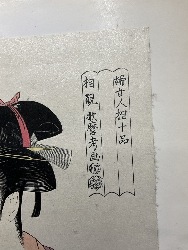 婦女人相十品
相観 歌麿考画